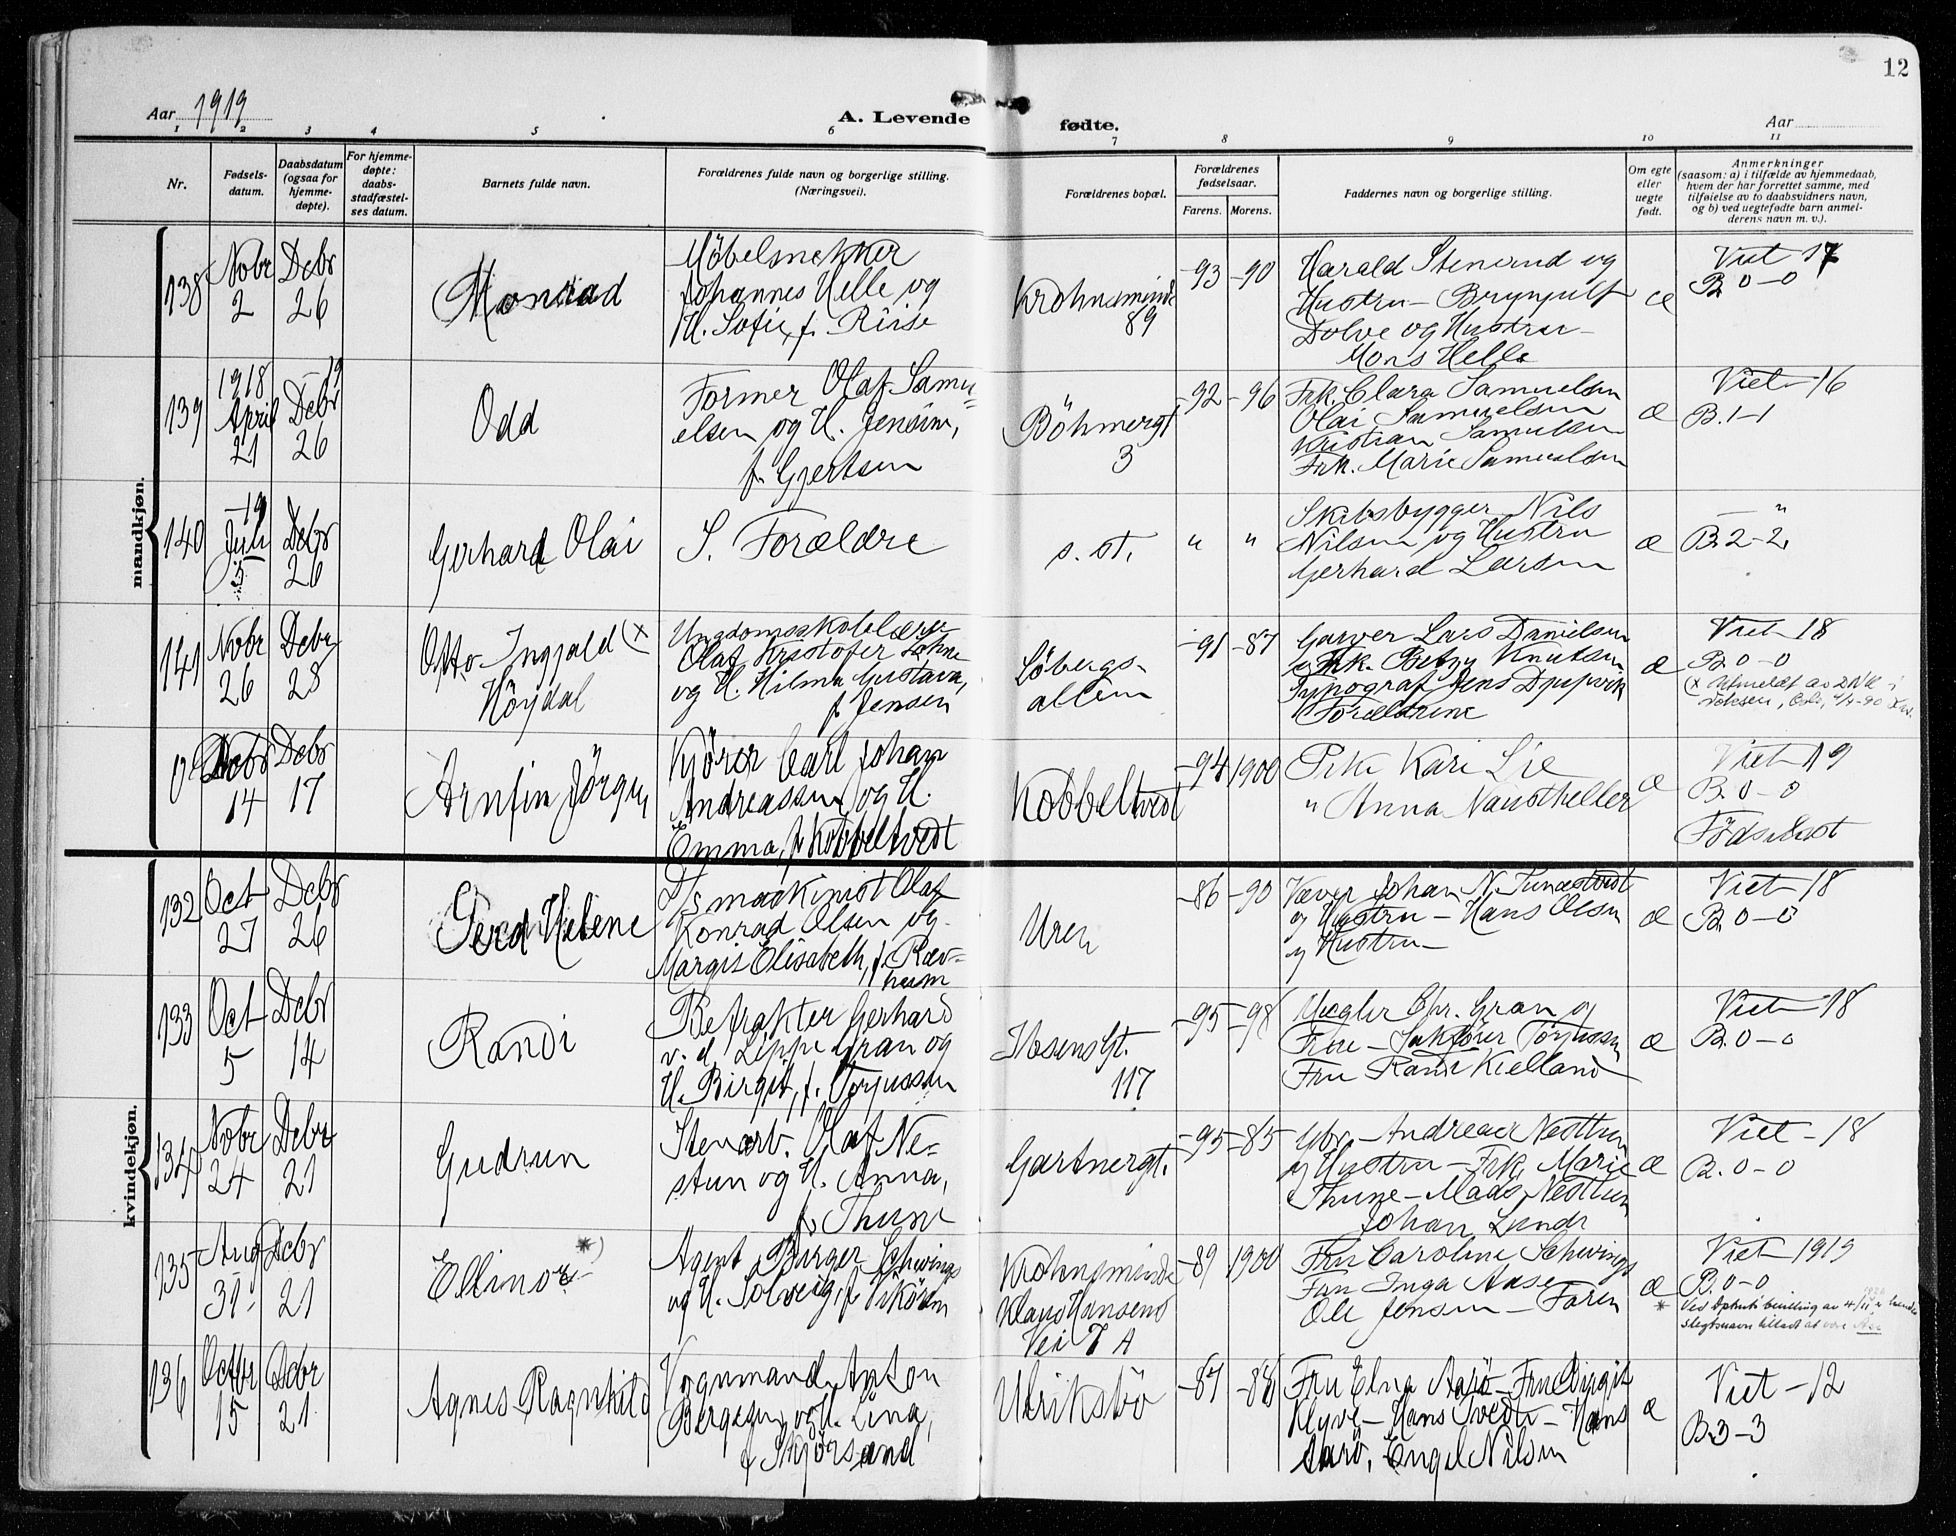 12
Aar 1919
A. Levende fødte.
Aar
1 2 3 4 5 6 7 8 9 10 11
Nr.
Fødsels-
datum.
Daabsdatum
(ogsaa for
hjemme-
døpte).
For hjemme-
døpte:
daabs-
stadfæstel-
ses datum.
Barnets fulde navn.
Forældrenes fulde navn og borgerlige stilling.
(Næringsvei).
Forældrenes bopæl.
Forældrenes
fødselsaar.
Farens. Morens.
Faddernes navn og borgerlige stilling.
Om egte
eller
uegte
født.
Anmerkninger
(saasom: a) i tilfælde av hjemmedaab,
hvem der har forrettet samme, med
tilføielse av to daabsvidners navn,
og b) ved uegtefødte barn anmel-
derens navn m. v.).
mandkjøn.
138
Nobr
2
Debr
26
Monrad
Møbelsnekker
Johannes Helle og
H. Sofie, f. Riise
Krohnsminde
89
-93 -90
Harald Stenrud og
Hustru - Brynjulf
Dolve og Hustru -
Mons Helle
æ
Viet 17
B. 0-0
139
1918
April
21
-19
Debr
26
Odd
Former Olaf Samu-
elsen og H. Jensine,
f. Gjertsen
Böhmergt
3
-92 -96
Frk. Clara Samuelsen
Olai Samuelsen
Kristian Samuelsen
Frk. Marie Samuelsen
æ
Viet -16
B. 1-1
140
-19
Juli
5
Debr
26
Gerhard Olai
S. Forældre
s. st.
" "
Skibsbygger Nils
Nilsen og Hustru
Gerhard Larsen
æ
— "
B. 2-2
141
Nobr
26
Debr
28
Otto Ingjald (x
Höydal
Ungdomsskolelærer
Olaf Kristofer Løhne
og H. Hilma Gustava,
f. Jensen
Löbergs-
alleen
-91 -87
Garver Lars Danielsen
Frk. Betzy Knutsen
Typograf Jens Djupvik
Forældrene
æ
Viet 18
B. 0-0
(x Utmeldt av DNK i
voksen, Oslo,
Debr
14
Debr
17
Arnfin Jörgen
Kjører Carl Johan
Andreassen og H.
Emma, f. Kobbeltvedt
Kobbeltvedt
-94 1900
Frk. Kari Lie
" Anna Naustheller
æ
Viet 19
B. 0-0
Födselsst
kvindekjøn.
132
Oct
27
Debr
26
Gerd Helene
Ds maskinist Olaf
Konrad Olsen og
Margit Elisabeth, f. Ræv-
heim
Uren
-86 -90
Væver Johan N. Tunestvedt
og Hustru - Hans Olsen
og Hustru -
æ
Viet -18
B. 0-0
133
Oct
5
Debr
14
Randi
Befrakter Gerhard
v. d. Lippe Gran og
H. Birgit, f. Torjussen
Ibsens Gt.
117
-95 -98
Megler Chr. Gran og
Frue - Sakfører Torjussen
Fru Randi Kielland
æ
Viet -18
B. 0-0
134
Nobr
24
Debr
21
Gudrun
Stenarb. Olaf Ne-
stun og H. Anna,
f. Thune
Gartnergt.
-95 -85
Gbr. Andreas Nesttun
og Hustru - Frk. Marie
Thune - Mads Nesttun
Johan Lunde
æ
Viet -18
B. 0-0
135
Aug
31
Debr
21
Ellinor *)
Agent Birger Schwings
og H. Solveig, f.
Krohnsminde
Klaus Hansens
Vei 7 A
-89 1900
Fru Caroline Schwings
Fru Inga Aase
Ole Jensen - Faren
æ
Viet 1919
B. 0-0
* Ved Dptnts bevilling av 4/11
slegtsnavn tilladt at være
136
Octbr
15
Debr
21
Agnes Ragnhild
Vognmand Anton
Bergesen og H. Lina,
f. Skjörsand
Ulriksbö
-87 -88
Fru Elna Aarö - Fru Birgit
Klyve - Hans Tvedt - Hans
Aarö, Engel Nilsen
æ
Viet -12
B. 3-3